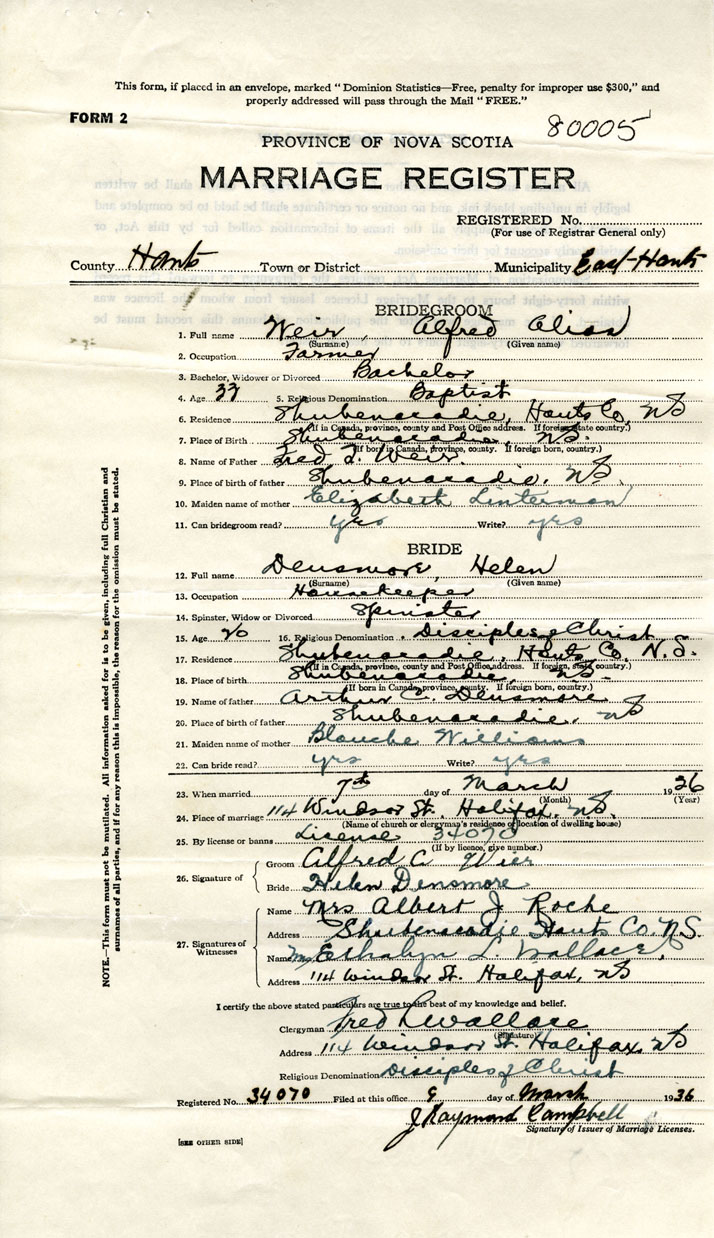 This form, if placed in an envelope, marked "Dominion Statistics—Free, penalty for improper use $300," and
properly addressed will pass through the Mail "FREE."
FORM 2
80005
PROVINCE OF NOVA SCOTIA
MARRIAGE REGISTER
REGISTERED No.
(For use of Registrar General only)
County Hants Town or District Municipality East-Hants
BRIDEGROOM
1. Full name Weir, Alfred
(Surname) (Given name)
2. Occupation Farmer
3. Bachelor, Widower or Divorced Bachelor
4. Age 33 5. Religious Denomination Baptist
6. Residence Shubenacadie, Hants Co, NS
(If in Canada, province, county and Post Office address. If foreign state country.)
7. Place of Birth Shubenacadie, NS.
(If born in Canada, province, county. If foreign born, country.)
8. Name of Father Fred Weir.
9. Place of birth of father Shubenacadie, NS.
10. Maiden name of mother Elizabeth Linterman
11. Can bridegroom read? yes Write? yes
BRIDE
12. Full name Densmore, Helen
(Surname) (Given name)
13. Occupation Housekeeper
14. Spinster, Widow or Divorced Spinster
15. Age 20 16. Religious Denomination Disciples of Christ
17. Residence Shubenacadie, Hants Co, N.S.
(If in Canada, province, county and Post Office address. If foreign, state country.)
18. Place of birth Shubenacadie, NS.
(If born in Canada, province, county. If foreign born, country.)
19. Name of father Arthur C. Densmore
20. Place of birth of father Shubenacadie, NS
21. Maiden name of mother Blanche Williams
22. Can bride read? yes Write? yes
23. When married 7th day of March 1936
(Month) (Year)
24. Place of marriage 114 Windsor St. Halifax, NS.
(Name of church or clergyman's residence or location of dwelling house)
25. By license or banns License 34070
(If by licence, give number.)
26. Signature of
Groom Alfred C Wier
Bride Helen Densmore
27. Signatures of Witnesses
Name Mrs Albert J Roche
Address Shubenacadie Hants Co. N.S.
Name Mrs Ethalyn L. Wallace.
Address 114 Windsor St. Halifax, NS
I certify the above stated particulars are true to the best of my knowledge and belief.
Clergyman Fred Wallace
(Signature)
Address 114 Windsor St. Halifax, NS
Religious Denomination Disciples of Christ
Registered No. 34070 Filed at this office 9 day of March 1936
J Raymond Campbell
Signature of Issuer of Marriage Licenses.
[SEE OTHER SIDE]
NOTE.—This form must not be mutilated. All information asked for is to be given, including full Christian and
surnames of all parties, and if for any reason this is impossible, the reason for the omission must be stated.